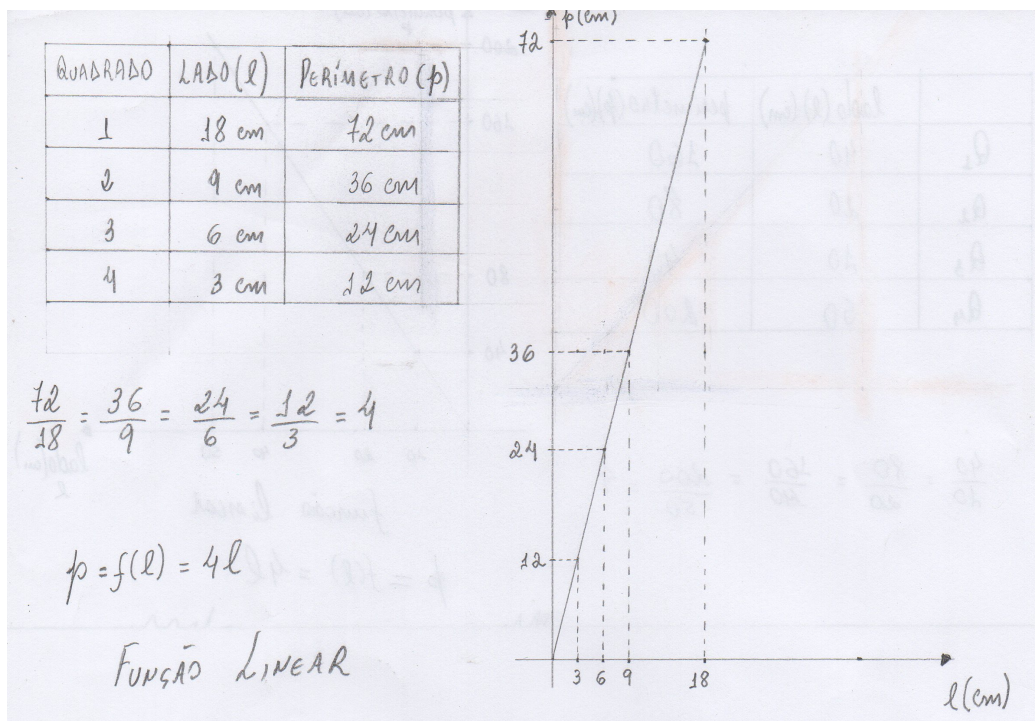 QUADRADO LADO (l) PERÍMETRO (p)
1 18 cm 72 cm
2 9 cm 36 cm
3 6 cm 24 cm
4 3 cm 12 cm
72/18 = 36/9 = 24/6 = 12/3 = 4
p = f(l) = 4l
FUNÇÃO LINEAR
p(cm)
72
36
24
12
3 6 9 18
l(cm)